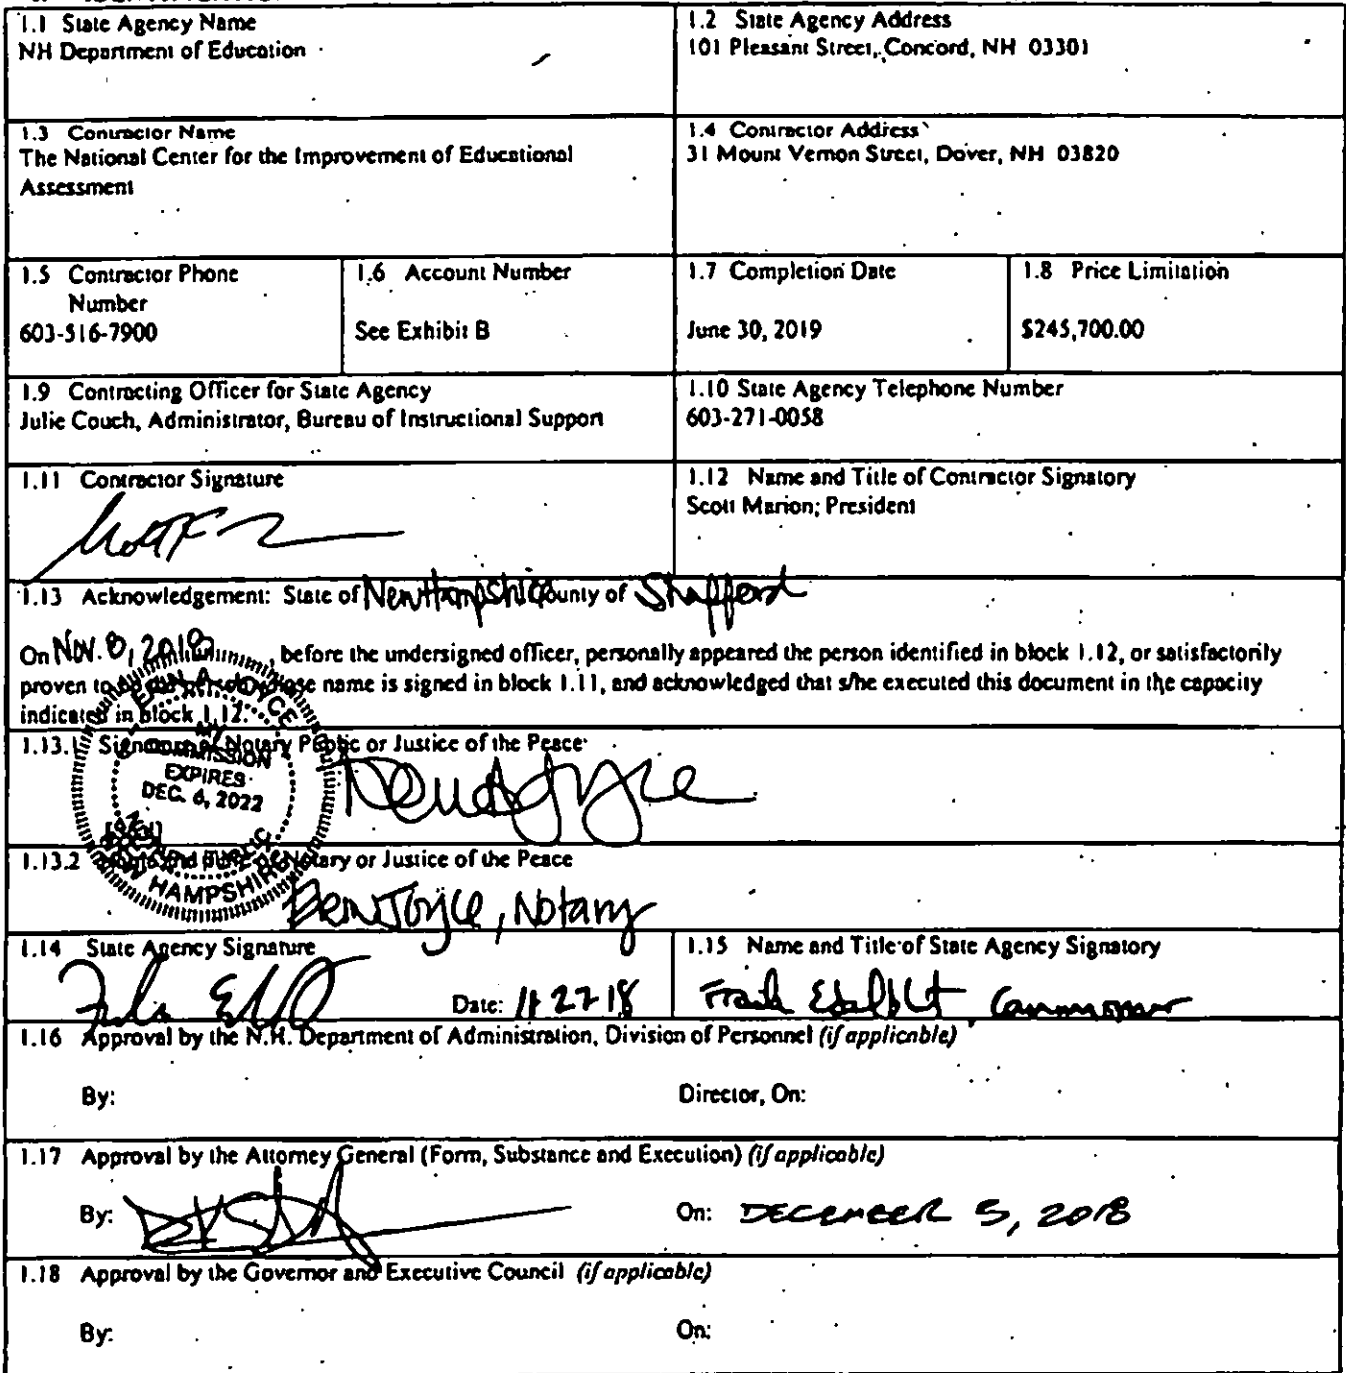 1.1 State Agency Name
NH Department of Education
1.2 State Agency Address
101 Pleasant Street, Concord, NH 03301
1.3 Contractor Name
The National Center for the Improvement of Educational
Assessment
1.4 Contractor Address
31 Mount Vernon Street, Dover, NH 03820
1.5 Contractor Phone
Number
603-516-7900
1.6 Account Number
See Exhibit B
1.7 Completion Date
June 30, 2019
1.8 Price Limitation
$245,700.00
1.9 Contracting Officer for State Agency
Julie Couch, Administrator, Bureau of Instructional Support
1.10 State Agency Telephone Number
603-271-0058
1.11 Contractor Signature
1.12 Name and Title of Contractor Signatory
Scott Marion; President
1.13 Acknowledgement: State of New Hampshire County of Strafford
On Nov. 8, 2018, before the undersigned officer, personally appeared the person identified in block 1.12, or satisfactorily
proven to name is signed in block 1.11, and acknowledged that s/he executed this document in the capacity
indicated in block 1.12.
1.13.1 Signature of Notary Public or Justice of the Peace
MY
COMMISSION
EXPIRES
DEC. 6, 2022
NEW HAMPSHIRE
1.13.2 Notary or Justice of the Peace
Joyce, Notary
1.14 State Agency Signature
Date: 11 27 18
1.15 Name and Title of State Agency Signatory
Frank Edelblut, Commissioner
1.16 Approval by the N.H. Department of Administration, Division of Personnel (if applicable)
By:
Director, On:
1.17 Approval by the Attorney General (Form, Substance and Execution) (if applicable)
By:
On: DECEMBER 5, 2018
1.18 Approval by the Governor and Executive Council (if applicable)
By:
On: